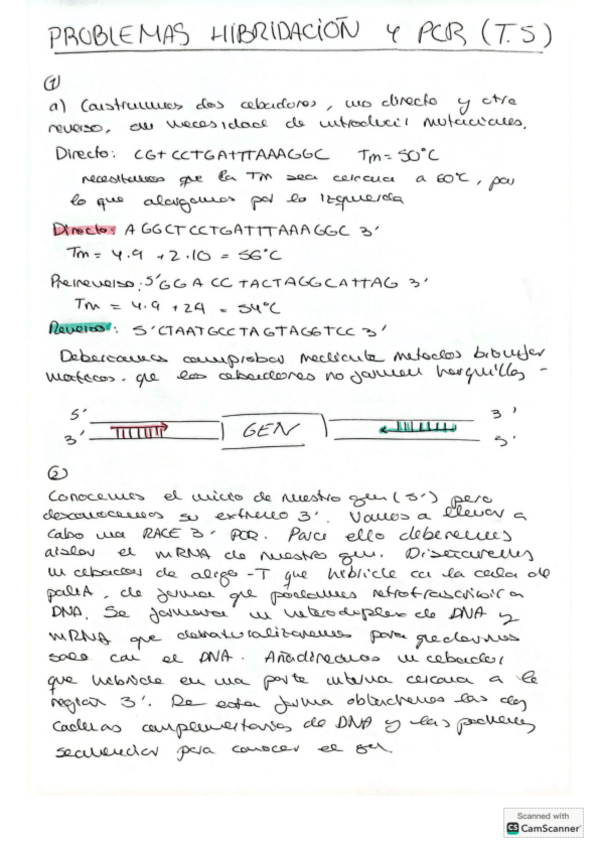 PROBLEMAS HIBRIDACIÓN Y PCR (T.5)
①
a) Construimos dos cebadores, uno directo y otro
reverso, sin necesidad de introducir mutaciones.
Directo: CGT CCTGATTTAAAGGC Tm = 50°C
necesitamos que la TM sea cercana a 60°C, por
lo que alargamos por la izquierda
Directo: AGGCTCCTGATTTAAAGGC 3'
Tm = 4·9 + 2·10 = 56°C
Prereverso: 5'GGACCTACTAGGCATTAG 3'
Tm = 4·9 + 24 = 54°C
Reverso: 5'CTAATGCCTAGTAGGTCC 3'
Deberíamos comprobar mediante métodos bioinfor
máticos que los cebadores no formen horquillas -
5' 3'
3' GEN 5'
②
Conocemos el inicio de nuestro gen (5') pero
desconocemos su extremo 3'. Vamos a llevar a
cabo una RACE 3' PCR. Para ello deberemos
aislar el mRNA de nuestro gen. Diseñaremos
un cebador de oligo-T que hibride con la cola de
poliA, de forma que podamos retrotranscribir a
DNA. Se formará un heteroduplex de DNA y
mRNA que desnaturalizaremos para quedarnos
solo con el DNA. Añadiremos un cebador
que hibride en una parte interna cercana a la
región 3'. De esta forma obtenemos las dos
cadenas complementarias de DNA y las podemos
secuenciar para conocer el gen.
Scanned with
CS CamScanner